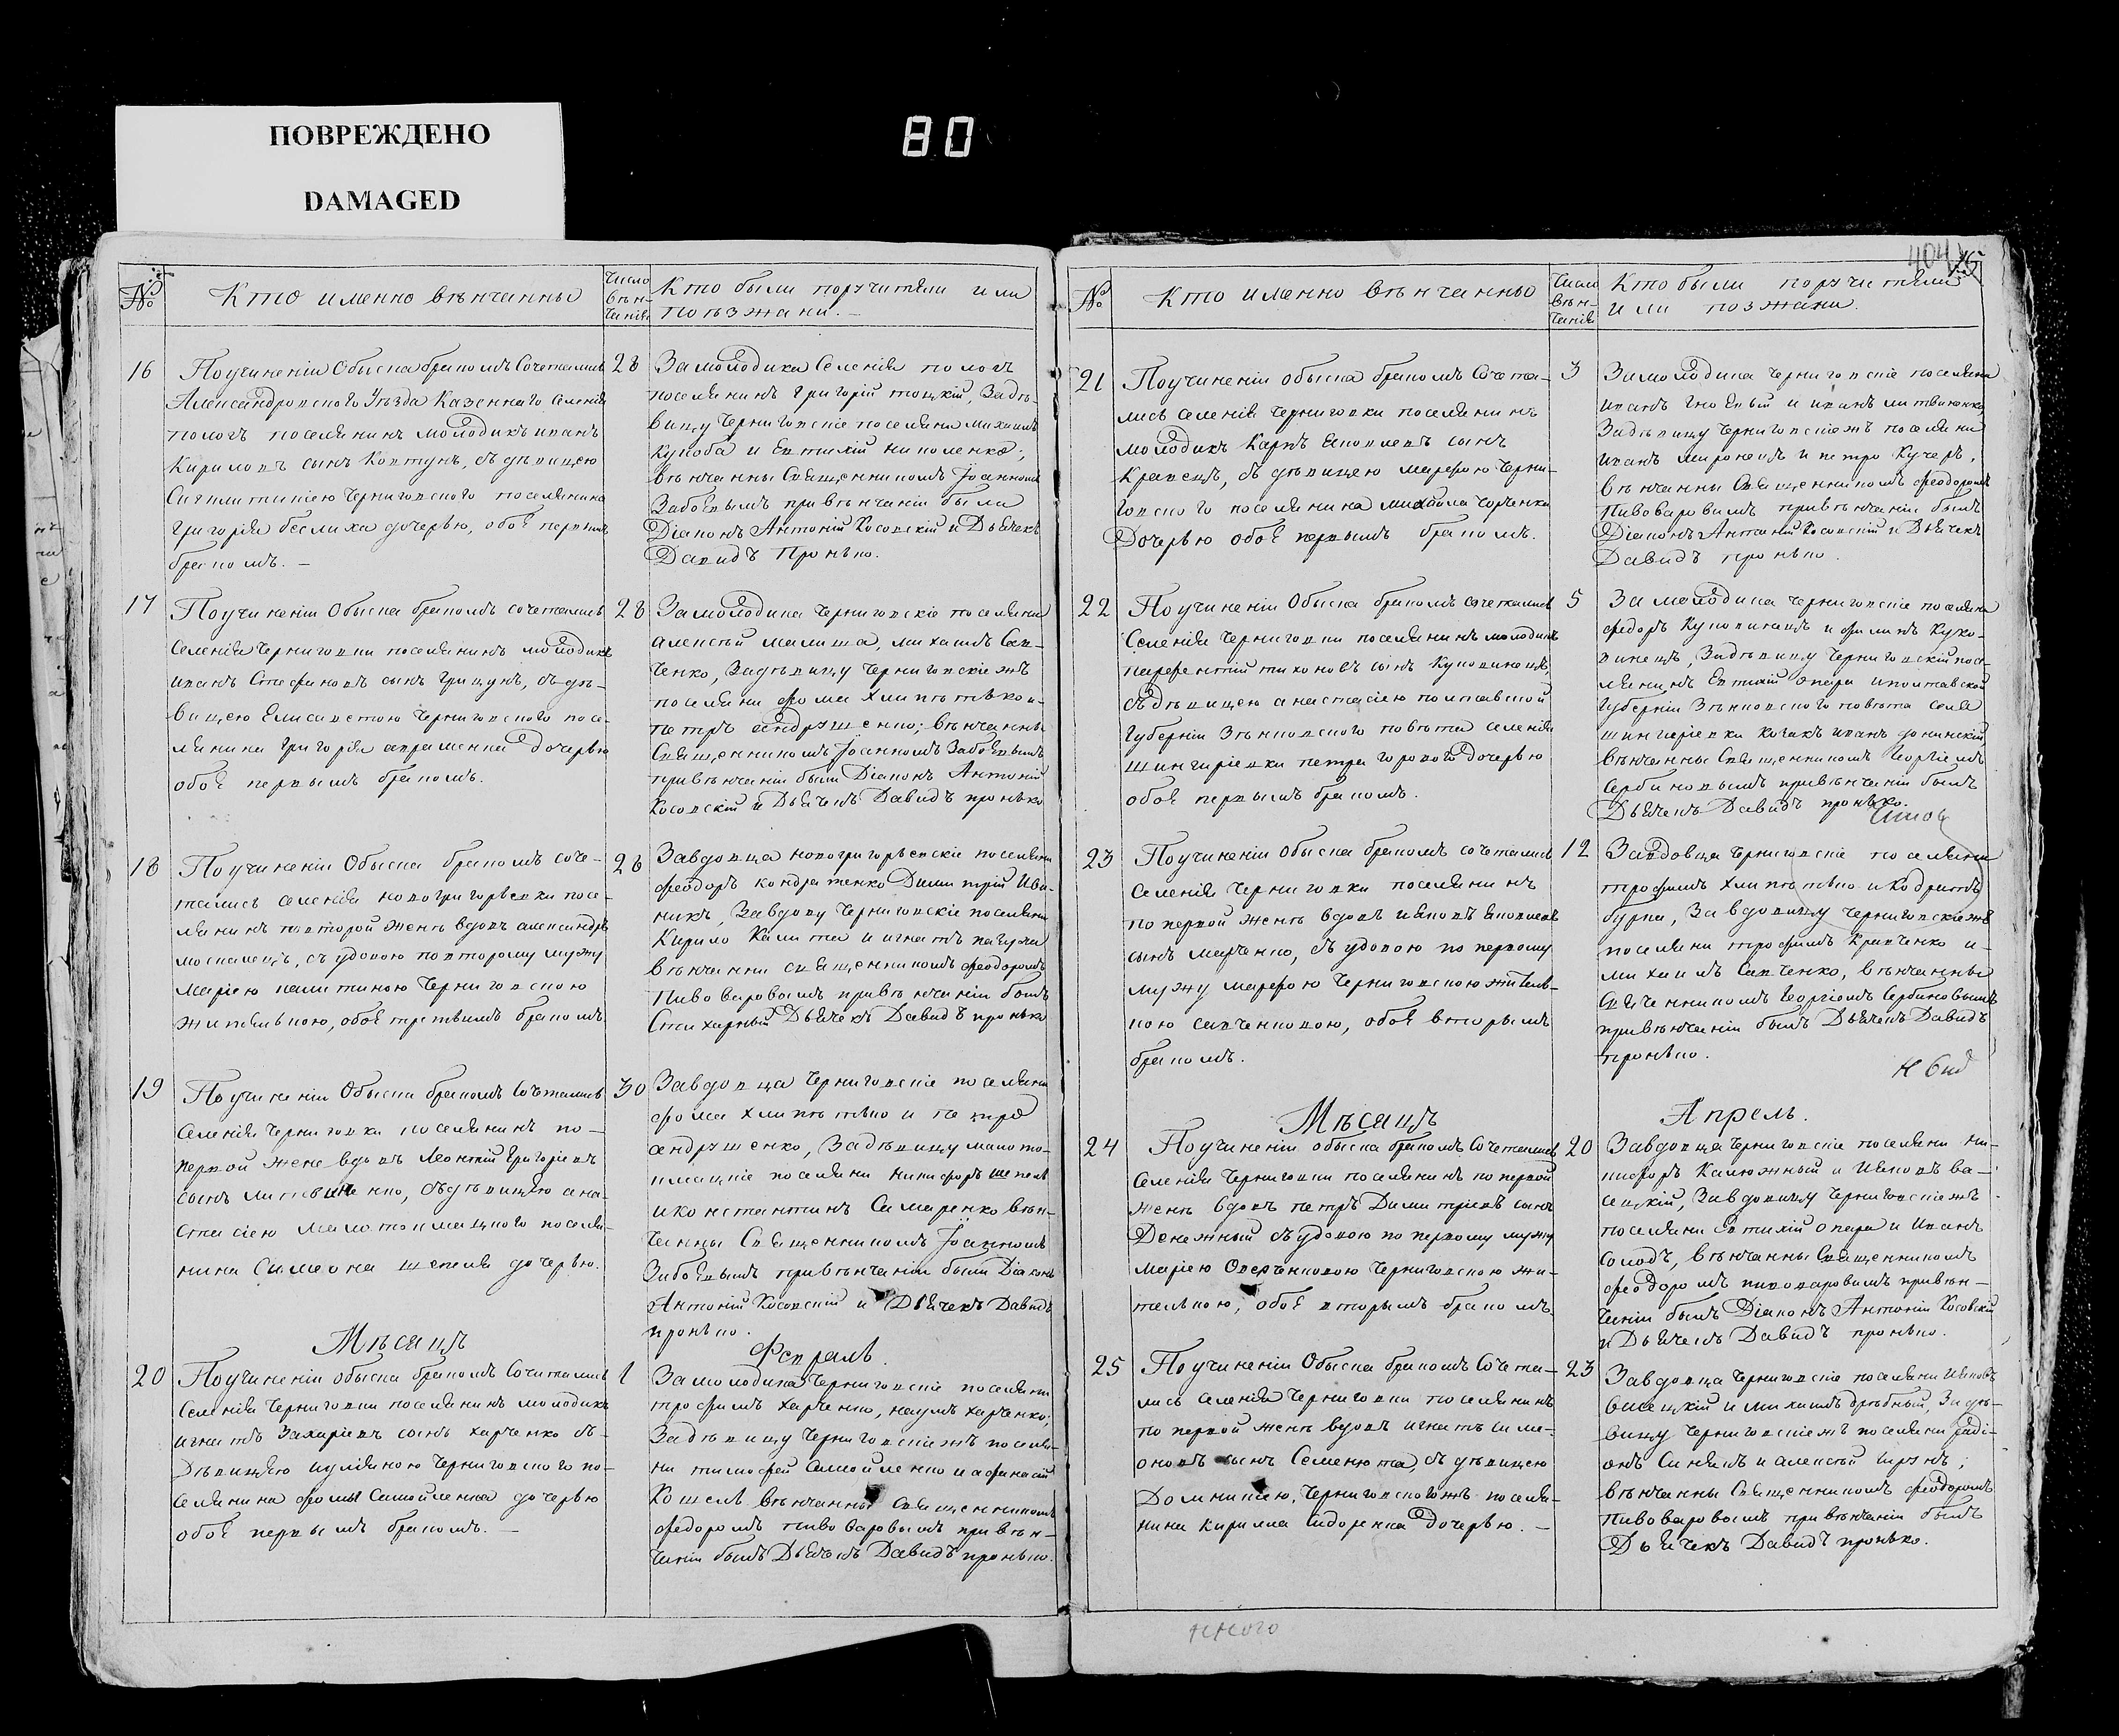 ПОВРЕЖДЕНО
DAMAGED
80
404
№
Кто именно вѣнчанны
Число
вѣн-
чанія
Кто были поручители или
поѣзжани.
16
По учиненіи Обыска бракомъ Сочетались
Александровского Уѣзда Казеннаго селенія
пологъ поселянинъ молодикъ иванъ
Кириловъ сынъ Ковтунъ, съ дѣвицею
Синклитикіею Черниговского поселянина
Григорія беслиха дочерью, обоя первымъ
бракомъ.
28
За молодика Селенія пологъ
поселянинъ Григорій тоцкій, За дѣ-
вицу Черниговскіе поселяни михаилъ
и Евтихій николенко;
вѣнчанны Священникомъ Іоанномъ
Забоевымъ при вѣнчаніи были
Діаконъ Антоній Косовскій и Дьячекъ
Давидъ Пронько.
17
По учиненіи Обыска бракомъ сочетались
Селенія Черниговки поселянинъ молодикъ
иванъ Стефановъ сынъ грицунъ, съ дѣ-
вицею Елисаветою Черниговского посе-
лянина григорія авраменка дочерью
обоя первымъ бракомъ.
28
За молодика Черниговскіе поселяни
алексѣй малиша, михаилъ Сав-
ченко, За дѣвицу Черниговскіе жъ
поселяни фома и
петръ андрушенко; вѣнчанны
Священникомъ Іоанномъ Забоевымъ
при вѣнчаніи были Діаконъ Антоній
Косовскій и Дьячекъ Давидъ пронько
18
По учиненіи Обыска бракомъ соче-
тались селенія новогригорьевки посе-
лянинъ по второй женѣ вдовъ александръ
москалецъ, съ удовою по второму мужу
маріею калитиною Черниговскою
жителькою, обоя третьимъ бракомъ
28
За вдовца новогригорьевскіе поселяни
феодоръ кондратенко Димитрій Ива-
никъ, За вдову Черниговскіе поселяни
Кирило Калита и игнатъ
вѣнчанни священникомъ феодоромъ
Пивоваровымъ при вѣнчаніи былъ
Стихарный Дьячекъ Давидъ пронько
19
По учиненіи Обыска бракомъ Сочетались
Селенія Черниговки поселянинъ по-
первой жене вдовъ Леонтій Григоріевъ
сынъ литвиненко, съ дѣвицею ана-
стасіею мало токмацкого поселя-
нина Симеона шепеля дочерью.
30
За вдовца Черниговскіе поселяни
фома и петро
андрушенко, За дѣвицу мало то-
кмацкіе поселяни никифоръ шепель
и константинъ Самаренко вѣн-
чанны Священникомъ Іоанномъ
Забоевымъ при вѣнчаніи были Діаконъ
Антоній Косовскій и Дьячекъ Давидъ
пронько.
Мѣсяцъ
Февраль.
20
По учиненіи обыска бракомъ Сочетались
Селенія Черниговки поселянинъ молодикъ
игнатъ Захаріевъ сынъ харченко съ
Дѣвицею иуліяною Черниговского по-
селянина фомы Самойленка дочерью
обоя первымъ бракомъ.
1
За молодика Черниговскіе поселяни
трофимъ харченко, наумъ харченко;
За дѣвицу Черниговскіе жъ поселя-
ни тимофей Самойленко и афанасій
Кошель вѣнчанны Священникомъ
федоромъ пивоваровымъ при вѣн-
чаніи былъ Дьячекъ Давидъ пронько.
№
Кто именно вѣнчанны
Число
вѣн-
чанія
Кто были поручители
или поѣзжани.
21
По учиненіи обыска бракомъ Сочета-
лись Селенія Черниговки поселянинъ
молодикъ Карпъ Яковлевъ сынъ
Кравецъ, съ дѣвицею марфою Черни-
говского поселянина михаила
Дочерью обоя первымъ бракомъ.
3
За молодика Черниговскіе поселяни
иванъ и иванъ литвиненко,
За дѣвицу Черниговскіе жъ поселяни
иванъ миронецъ и петро Кучеръ,
вѣнчанны Священникомъ феодоромъ
Пивоваровымъ при вѣнчаніи былъ
Діаконъ Антоній Косовскій и Дьячекъ
Давидъ пронько.
22
По учиненіи Обыска бракомъ сочетались
Селенія Черниговки поселянинъ молодикъ
парфентій тихоновъ сынъ
съ Дѣвицею анастасіею полтавской
Губерніи Зѣнковского повѣта селенія
шингаріевки петра горового Дочерью
обоя первымъ бракомъ.
5
За молодика Черниговскіе поселяни
федоръ и филипъ
За дѣвицу Черниговскій посе-
лянинъ Евтихій опара и полтавской
Губерніи Зѣнковского повѣта села
шингаріевки козакъ иванъ
вѣнчанны Священникомъ Георгіемъ
Сербиновымъ при вѣнчаніи былъ
Дьячекъ Давидъ пронько.
23
По учиненіи Обыска бракомъ сочетались
Селенія Черниговки поселянинъ
по первой женѣ вдовъ иаковъ Яковлевъ
сынъ марченко, съ удовою по первому
мужу марфою Черниговскою житель-
кою савченковою, обоя вторымъ
бракомъ.
12
За вдовца Черниговскіе поселяни
трофимъ и Кодратъ
бурка, За вдовицу Черниговскіе жъ
поселяни трофимъ Кравченко и
михаилъ Савченко, вѣнчанны
Священникомъ Георгіемъ Сербиновымъ
при вѣнчаніи былъ Дьячекъ Давидъ
пронько.
Мѣсяцъ
Апрель.
24
По учиненіи обыска бракомъ Сочетались
Селенія Черниговки поселянинъ по первой
женѣ вдовъ петръ Димитріевъ сынъ
Денежный съ удовою по первому мужу
маріею Черниговскою жи-
телькою, обоя вторымъ бракомъ.
20
За вдовца Черниговскіе поселяни ни-
кифоръ Калюжный и Иаковъ ва-
сецкій, За вдовицу Черниговскіе жъ
поселяни Евтихій опара и Иванъ
Солодъ, вѣнчанны Священникомъ
феодоромъ пивоваровымъ при вѣн-
чаніи былъ Діаконъ Антоній Косовскій
и Дьячекъ Давидъ пронько.
25
По учиненіи Обыска бракомъ Сочета-
лись селенія Черниговки поселянинъ
по первой женѣ вдовъ игнатъ симе-
оновъ сынъ Семенюта, съ дѣвицею
Домникіею, Черниговского жъ поселя-
нина кирилла сидоренка Дочерью.
23
За вдовца Черниговскіе поселяни Иаковъ
васецкій и михаилъ дробный, За дѣ-
вицу Черниговскіе жъ поселяни
и алексѣй
вѣнчанны Священникомъ феодоромъ
Пивоваровымъ при вѣнчаніи былъ
Дьячекъ Давидъ пронько.